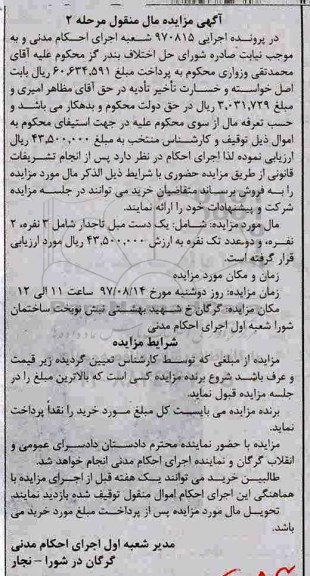 آگهی مزایده مال منقول مرحله ۲
در پرونده اجرایی ۹۷۰۸۱۵ شعبه اجرای احکام مدنی و به
موجب نیابت صادره شورای حل اختلاف بندر گز محکوم علیه آقای
محمدتقی وزواری محکوم به پرداخت مبلغ ۶۰,۶۳۴,۵۹۱ ریال بابت
اصل خواسته و خسارت تأخیر تأدیه در حق آقای مظاهر امیری و
مبلغ ۳,۰۳۱,۷۲۹ ریال در حق دولت محکوم و بدهکار می باشد و
حسب تعرفه مال از سوی محکوم علیه در جهت استیفای محکوم به
اموال ذیل توقیف و کارشناس منتخب به مبلغ ۴۳,۵۰۰,۰۰۰ ریال
ارزیابی نموده لذا اجرای احکام در نظر دارد پس از انجام تشریفات
قانونی از طریق مزایده حضوری با شرایط ذیل الذکر مال مورد مزایده
را به فروش برساند متقاضیان خرید می توانند در جلسه مزایده
شرکت و پیشنهادات خود را ارائه نمایند.
مال مورد مزایده: شامل: یک دست مبل تاجدار شامل ۳ نفره، ۲
نفره، و دوعدد تک نفره به ارزش ۴۳,۵۰۰,۰۰۰ ریال مورد ارزیابی
قرار گرفته است.
زمان و مکان مورد مزایده
زمان مزایده: روز دوشنبه مورخ ۹۷/۰۸/۱۴ ساعت ۱۱ الی ۱۲
مکان مزایده: گرگان خ شهید بهشتی نبش نوبخت ساختمان
شورا شعبه اول اجرای احکام مدنی
شرایط مزایده
مزایده از مبلغی که توسط کارشناس تعیین گردیده زیر قیمت
و عرف باشد شروع برنده مزایده کسی است که بالاترین مبلغ را در
جلسه مزایده قبول نماید.
برنده مزایده می بایست کل مبلغ مورد خرید را نقداً پرداخت
نماید.
مزایده با حضور نماینده محترم دادستان دادسرای عمومی و
انقلاب گرگان و نماینده اجرای احکام مدنی انجام خواهد شد.
طالبین خرید می توانند یک هفته قبل از اجرای مزایده با
هماهنگی این اجرای احکام اموال منقول توقیف شده بازدید نمایند.
تحویل مال مورد مزایده پس از پرداخت مبلغ مورد خرید می
باشد.
مدیر شعبه اول اجرای احکام مدنی
گرگان در شورا – نجار